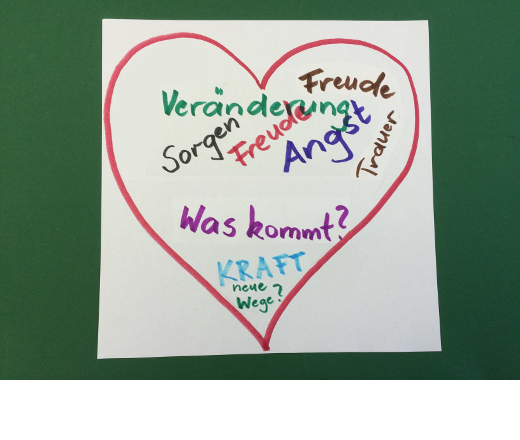 Freude
Veränderung
Sorgen
Freude
Angst
Trauer
Was kommt?
KRAFT
neue
Wege?